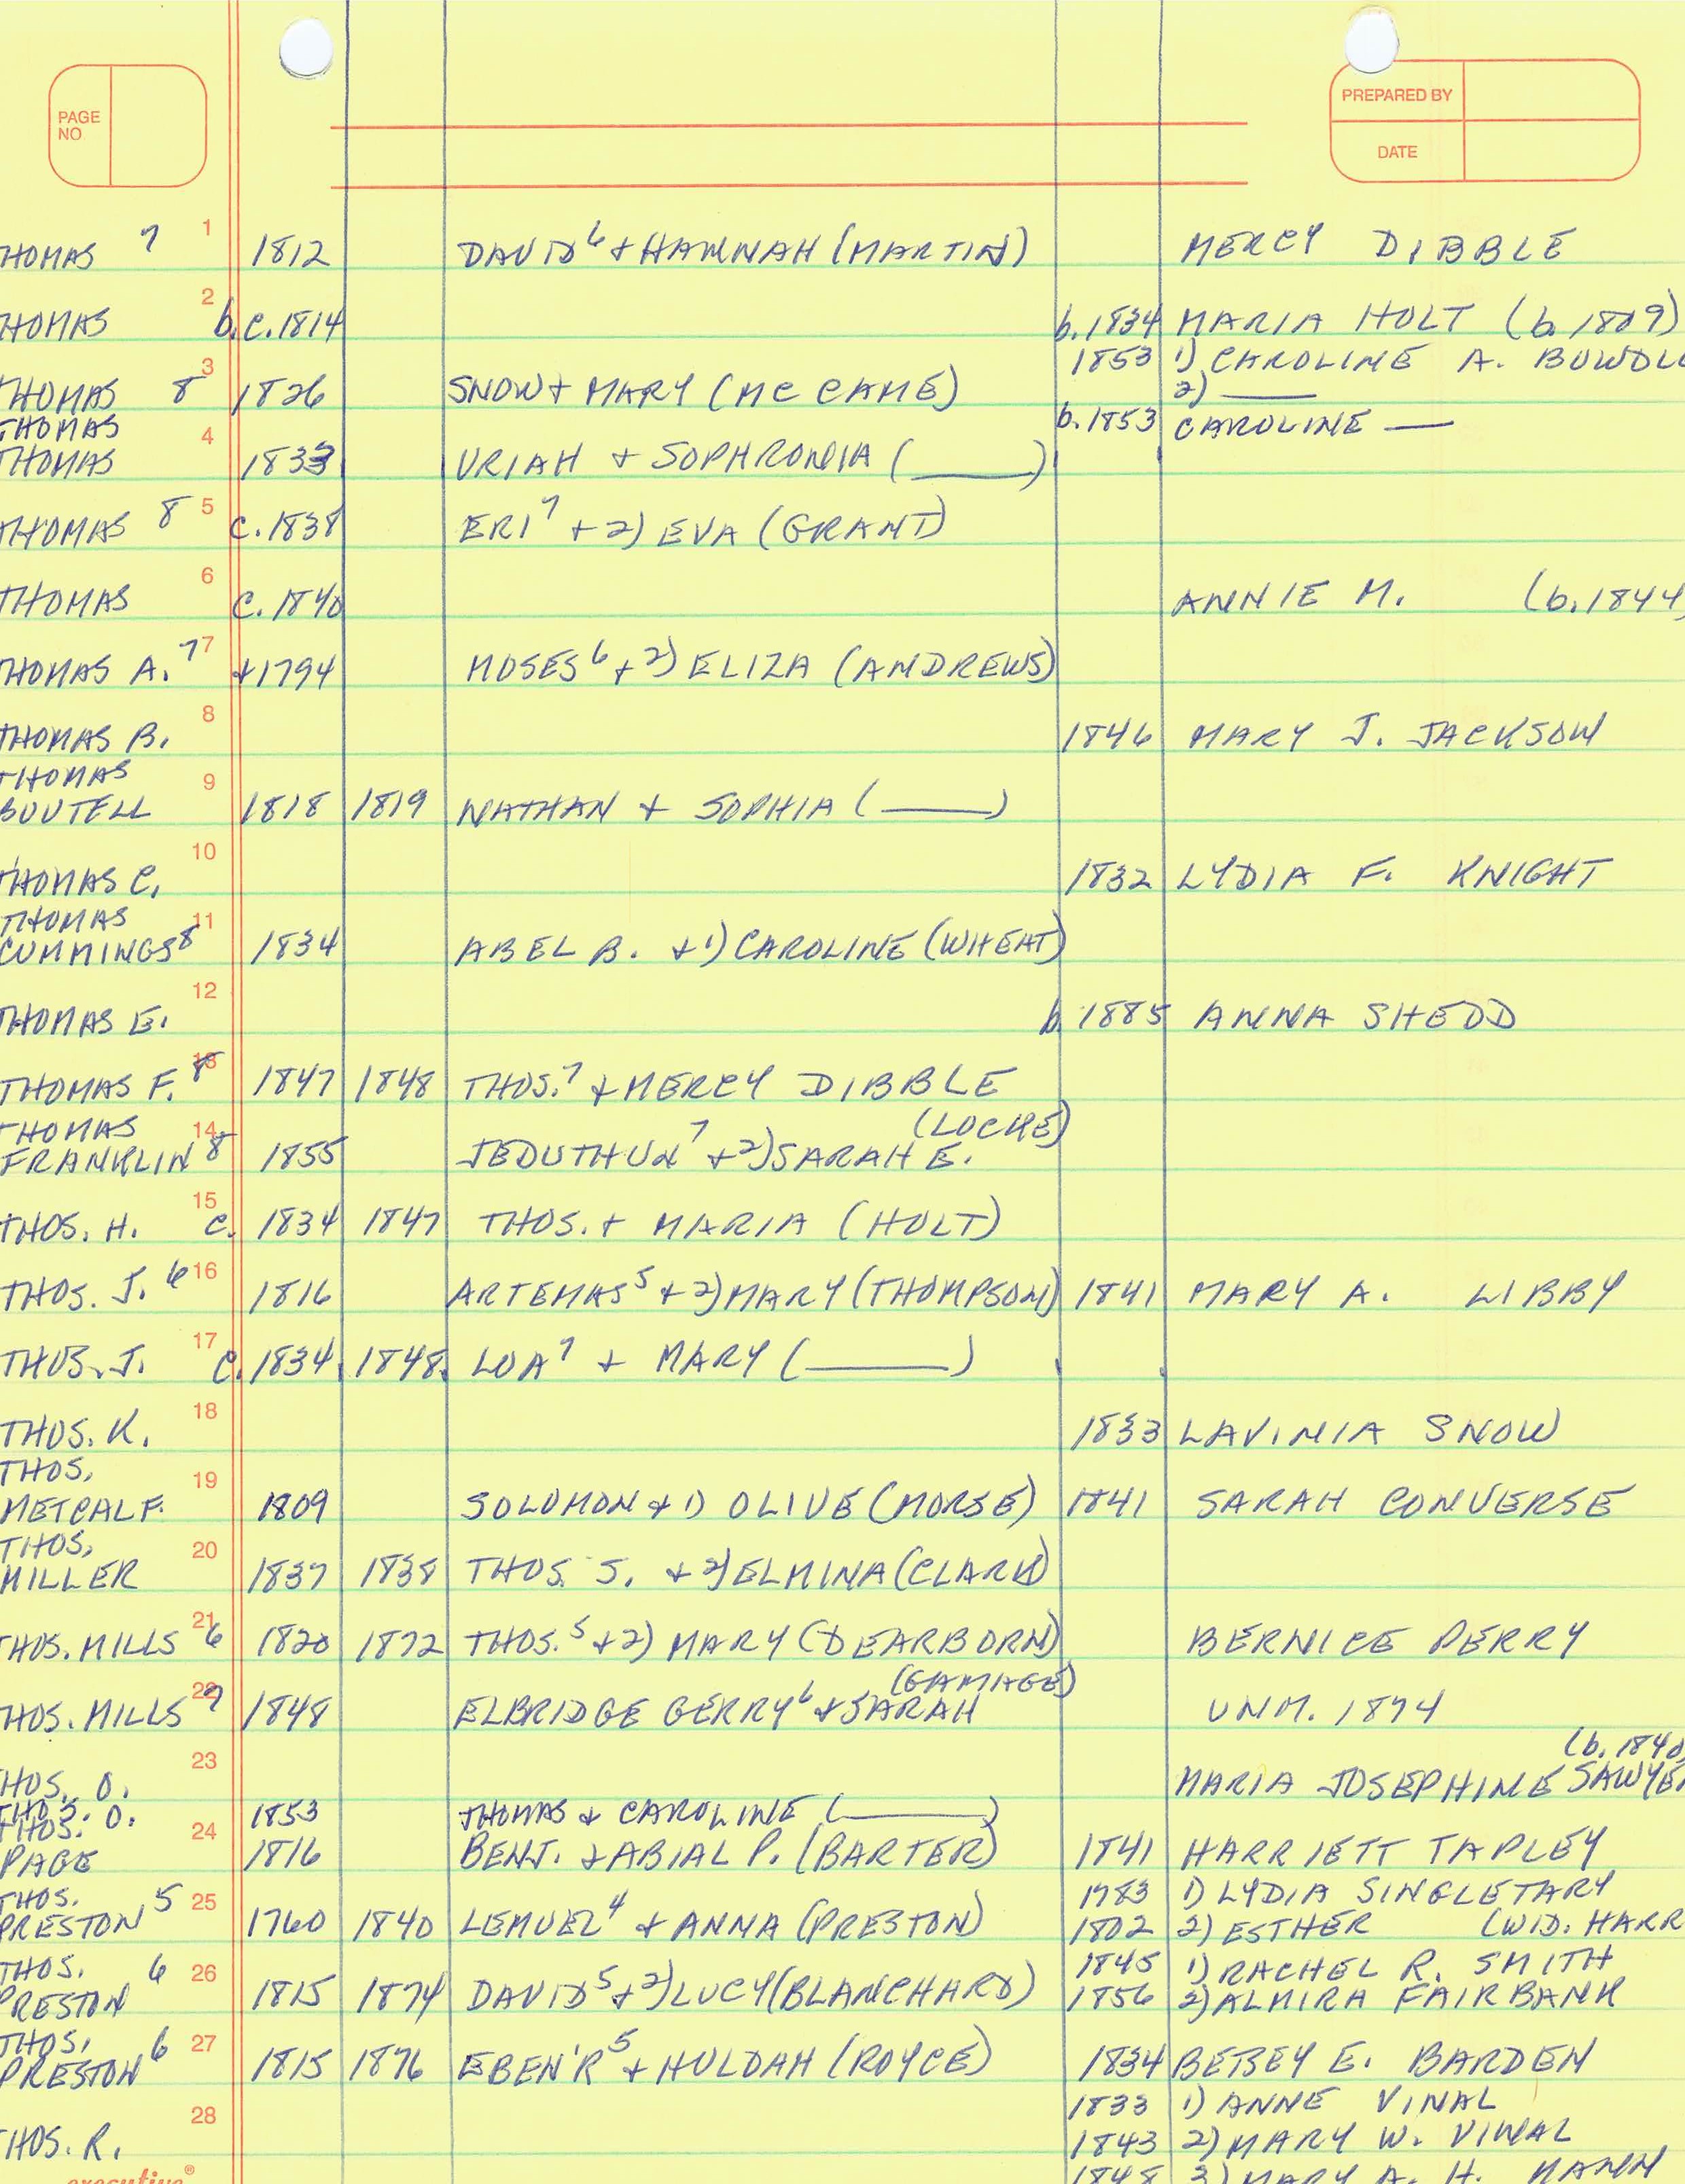 PAGE NO
PREPARED BY
DATE
HOMAS 7 1 1812 DAVID 6 + HANNAH (MARTIN) MERCY DIBBLE
HOMAS 2 b.c.1814 b.1834 MARIA HOLT (b. 1809)
1853 1) CAROLINE A.
THOMAS 8 3 1826 SNOW + MARY (MCCAME) 2) ___
THOMAS b.1853 CAROLINE —
THOMAS 4 1833 URIAH + SOPHRONIA (____)
THOMAS 8 5 c.1838 ERI 7 + 2) EVA (GRANT)
THOMAS 6 c.1840 ANNIE M. (b.1844
HOMAS A. 7 7 +1794 MOSES 6 + 2) ELIZA (ANDREWS)
THOMAS B. 8 1846 MARY J. JACKSON
THOMAS
BOUTELL 9 1818 1819 NATHAN + SOPHIA (____)
THOMAS C. 10 1832 LYDIA F. KNIGHT
THOMAS
CUMMINGS 8 11 1834 ABEL B. + 1) CAROLINE (WHEAT)
THOMAS E. 12 b 1885 ANNA SHEDD
THOMAS F. 8 13 1847 1848 THOS. 7 + MERCY DIBBLE
THOMAS (LOCKE)
FRANKLIN 8 14 1855 JEDUTHUN 7 + 2) SARAH E.
THOS. H. 15 c. 1834 1847 THOS. + MARIA (HOLT)
THOS. J. 6 16 1816 ARTEMAS 5 + 2) MARY (THOMPSON) 1841 MARY A. LIBBY
THOS. J. 17 c. 1834 1848 LOA 7 + MARY (____)
THOS. K. 18 1833 LAVINIA SNOW
THOS.
METCALF. 19 1809 SOLOMON + 1) OLIVE (MORSE) 1841 SARAH CONVERSE
THOS.
MILLER 20 1837 1838 THOS. S. + 2) ELMINA (CLARK)
THOS. MILLS 6 21 1820 1872 THOS. 5 + 2) MARY (DEARBORN) BERNICE PERRY
(GAMAGE)
HOS. MILLS 7 22 1848 ELBRIDGE GERRY 6 + SARAH UNM. 1874
(b. 1840
HOS. O. 23 MARIA JOSEPHINE SAWYE
THOS. O. 1853 THOMAS + CAROLINE (____)
THOS.
PAGE 24 1816 BENJ. + ABIAL P. (BARTER) 1841 HARRIETT TAPLEY
THOS. 1783 1) LYDIA SINGLETARY
PRESTON 5 25 1760 1840 LEMUEL 4 + ANNA (PRESTON) 1802 2) ESTHER (WID. HARR
THOS. 1845 1) RACHEL R. SMITH
PRESTON 6 26 1815 1874 DAVID 5 + 2) LUCY (BLANCHARD) 1856 2) ALMIRA FAIRBANK
THOS.
PRESTON 6 27 1815 1876 EBEN'R 5 + HULDAH (ROYCE) 1834 BETSEY E. BARDEN
1833 1) ANNE VINAL
HOS. R. 28 1843 2) MARY W. VINAL
1848 3) MARY A. H. MANN
executive®